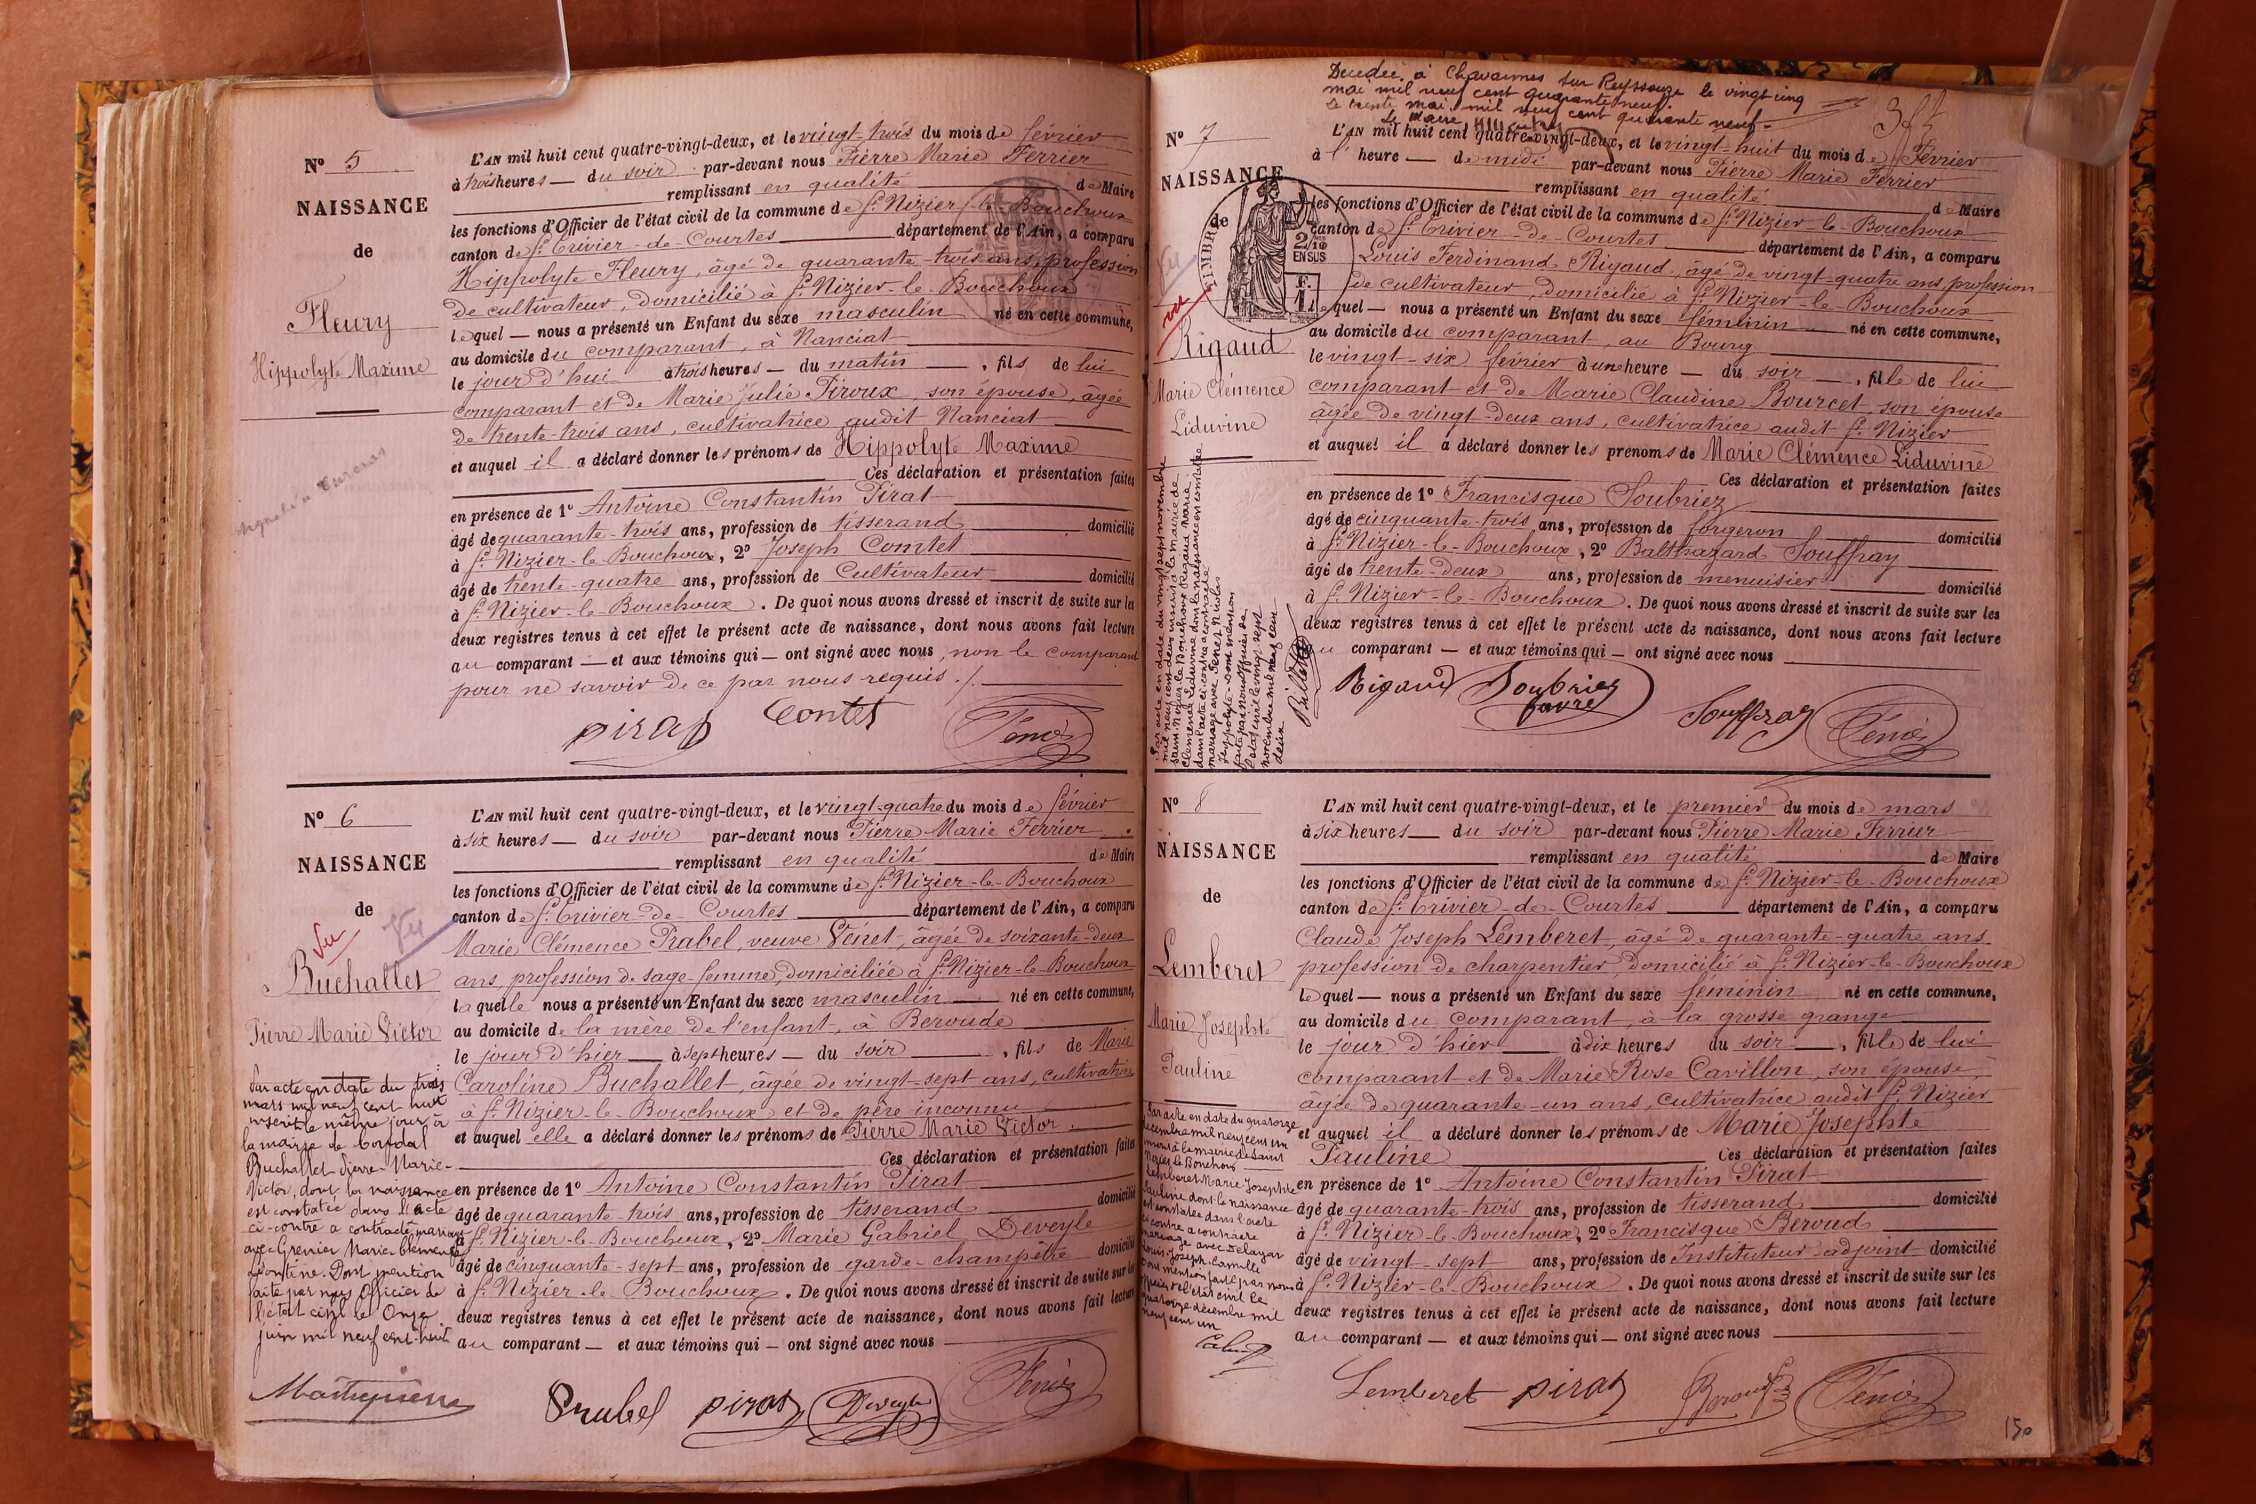 N° 5
NAISSANCE
de
Fleury
Hippolyte Maxime
L'AN mil huit cent quatre-vingt-deux, et le vingt-trois du mois de février
à trois heures — du soir par-devant nous Pierre Marie Ferrier
remplissant en qualité de Maire
les fonctions d'Officier de l'état civil de la commune de St Nizier-le-Bouchoux
canton de St Trivier-de-Courtes département de l'Ain, a comparu
Hippolyte Fleury, âgé de quarante-trois ans, profession
de cultivateur, domicilié à St Nizier-le-Bouchoux
lequel — nous a présenté un Enfant du sexe masculin né en cette commune,
au domicile du comparant, à Nanciat
le jour d'hui à trois heures — du matin —, fils de lui
comparant et de Marie Julie Piroux, son épouse, âgée
de trente-trois ans, cultivatrice audit Nanciat
et auquel il a déclaré donner les prénoms de Hippolyte Maxime
Ces déclaration et présentation faites
en présence de 1° Antoine Constantin Pirat
âgé de quarante-trois ans, profession de tisserand domicilié
à St Nizier-le-Bouchoux, 2° Joseph Comtet
âgé de trente-quatre ans, profession de Cultivateur domicilié
à St Nizier-le-Bouchoux. De quoi nous avons dressé et inscrit de suite sur les
deux registres tenus à cet effet le présent acte de naissance, dont nous avons fait lecture
au comparant — et aux témoins qui — ont signé avec nous, non le comparant
pour ne savoir de ce par nous requis ./.
pirat Contet
N° 6
NAISSANCE
de
Vu Vu
Buchallet
Pierre Marie Victor
Par acte en date du trois
mars mil neuf cent huit
inscrit le même jour à
la mairie de
Buchallet Pierre-Marie-
Victor, dont la naissance
est constatée dans l'acte
ci-contre a contracté mariage
avec Grenier Marie Clémence
Léontine. Dont mention
faite par nous Officier de
l'état civil le Onze
juin mil neuf cent huit
L'AN mil huit cent quatre-vingt-deux, et le vingt-quatre du mois de février
à six heures — du soir par-devant nous Pierre Marie Ferrier
remplissant en qualité de Maire
les fonctions d'Officier de l'état civil de la commune de St Nizier-le-Bouchoux
canton de St Trivier-de-Courtes département de l'Ain, a comparu
Marie Clémence Prabel, veuve Venet, âgée de soixante-deux
ans, profession de sage-femme, domiciliée à St Nizier-le-Bouchoux
laquelle nous a présenté un Enfant du sexe masculin né en cette commune,
au domicile de la mère de l'enfant, à Beroude
le jour d'hier — à sept heures — du soir, fils de Marie
Caroline Buchallet, âgée de vingt-sept ans, cultivatrice
à St Nizier-le-Bouchoux et de père inconnu
et auquel elle a déclaré donner les prénoms de Pierre Marie Victor.
Ces déclaration et présentation faites
en présence de 1° Antoine Constantin Pirat
âgé de quarante-trois ans, profession de tisserand domicilié
à St Nizier-le-Bouchoux, 2° Marie Gabriel Deveyle
âgé de cinquante-sept ans, profession de garde-champêtre domicilié
à St Nizier-le-Bouchoux. De quoi nous avons dressé et inscrit de suite sur les
deux registres tenus à cet effet le présent acte de naissance, dont nous avons fait lecture
au comparant — et aux témoins qui — ont signé avec nous
Prabel pirat Deveyle
Décédée à Chavannes sur Reyssouze le vingt cinq
mai mil neuf cent quarante neuf.
Le trente mai mil neuf cent quarante neuf.
Le Maire
N° 7
NAISSANCE
de
TIMBRE
2/10 EN SUS
F. 1
vu
Rigaud
Marie Clémence
Liduvine
Par acte en date du vingt sept novembre
mil neuf cent deux inscrit à la mairie de
saint Nizier le Bouchoux Rigaud Marie
Clémence Liduvine dont la naissance est constatée
dans l'acte ci-contre a contracté
mariage avec
Hippolyte dont mention
faite par nous officier de
l'état civil le vingt sept
novembre mil neuf cent
deux
L'AN mil huit cent quatre-vingt-deux, et le vingt-huit du mois de Février
à l' heure — de midi par-devant nous Pierre Marie Ferrier
remplissant en qualité de Maire
les fonctions d'Officier de l'état civil de la commune de St Nizier-le-Bouchoux
canton de St Trivier-de-Courtes département de l'Ain, a comparu
Louis Ferdinand Rigaud, âgé de vingt-quatre ans, profession
de cultivateur, domicilié à St Nizier-le-Bouchoux
lequel — nous a présenté un Enfant du sexe féminin né en cette commune,
au domicile du comparant, au Bourg
le vingt-six février à une heure — du soir —, fille de lui
comparant et de Marie Claudine Bourcet, son épouse
âgée de vingt-deux ans, cultivatrice audit St Nizier
et auquel il a déclaré donner les prénoms de Marie Clémence Liduvine
Ces déclaration et présentation faites
en présence de 1° Francisque Soubriez
âgé de cinquante-trois ans, profession de forgeron domicilié
à St Nizier-le-Bouchoux, 2° Balthazard Souffray
âgé de trente-deux ans, profession de menuisier domicilié
à St Nizier-le-Bouchoux. De quoi nous avons dressé et inscrit de suite sur les
deux registres tenus à cet effet le présent acte de naissance, dont nous avons fait lecture
au comparant — et aux témoins qui — ont signé avec nous
Rigaud Soubriez Souffray
favre
N° 8
NAISSANCE
de
Lemberet
Marie Josephte
Pauline
Par acte en date du quatorze
décembre mil neuf cent un
inscrit à la mairie de Saint
Nizier le Bouchoux
Lemberet Marie Josephte
Pauline dont la naissance
est constatée dans l'acte
ci contre a contracté
mariage avec Delayat
Louis Joseph Camille
Dont mention faite par nous
officier de l'état civil le
quatorze décembre mil
neuf cent un
L'AN mil huit cent quatre-vingt-deux, et le premier du mois de mars
à six heures — du soir par-devant nous Pierre Marie Ferrier
remplissant en qualité de Maire
les fonctions d'Officier de l'état civil de la commune de St Nizier-le-Bouchoux
canton de St Trivier-de-Courtes département de l'Ain, a comparu
Claude Joseph Lemberet, âgé de quarante-quatre ans
profession de charpentier, domicilié à St Nizier-le-Bouchoux
lequel — nous a présenté un Enfant du sexe féminin né en cette commune,
au domicile du comparant, à la grosse grange
le jour d'hier — à dix heures du soir —, fille de lui
comparant et de Marie Rose Cavillon, son épouse,
âgée de quarante-un ans, cultivatrice audit St Nizier
et auquel il a déclaré donner les prénoms de Marie Josephte
Pauline Ces déclaration et présentation faites
en présence de 1° Antoine Constantin Pirat
âgé de quarante-trois ans, profession de tisserand domicilié
à St Nizier-le-Bouchoux, 2° Francisque Beroud
âgé de vingt-sept ans, profession de Instituteur adjoint domicilié
à St Nizier-le-Bouchoux. De quoi nous avons dressé et inscrit de suite sur les
deux registres tenus à cet effet le présent acte de naissance, dont nous avons fait lecture
au comparant — et aux témoins qui — ont signé avec nous
Lemberet pirat
150